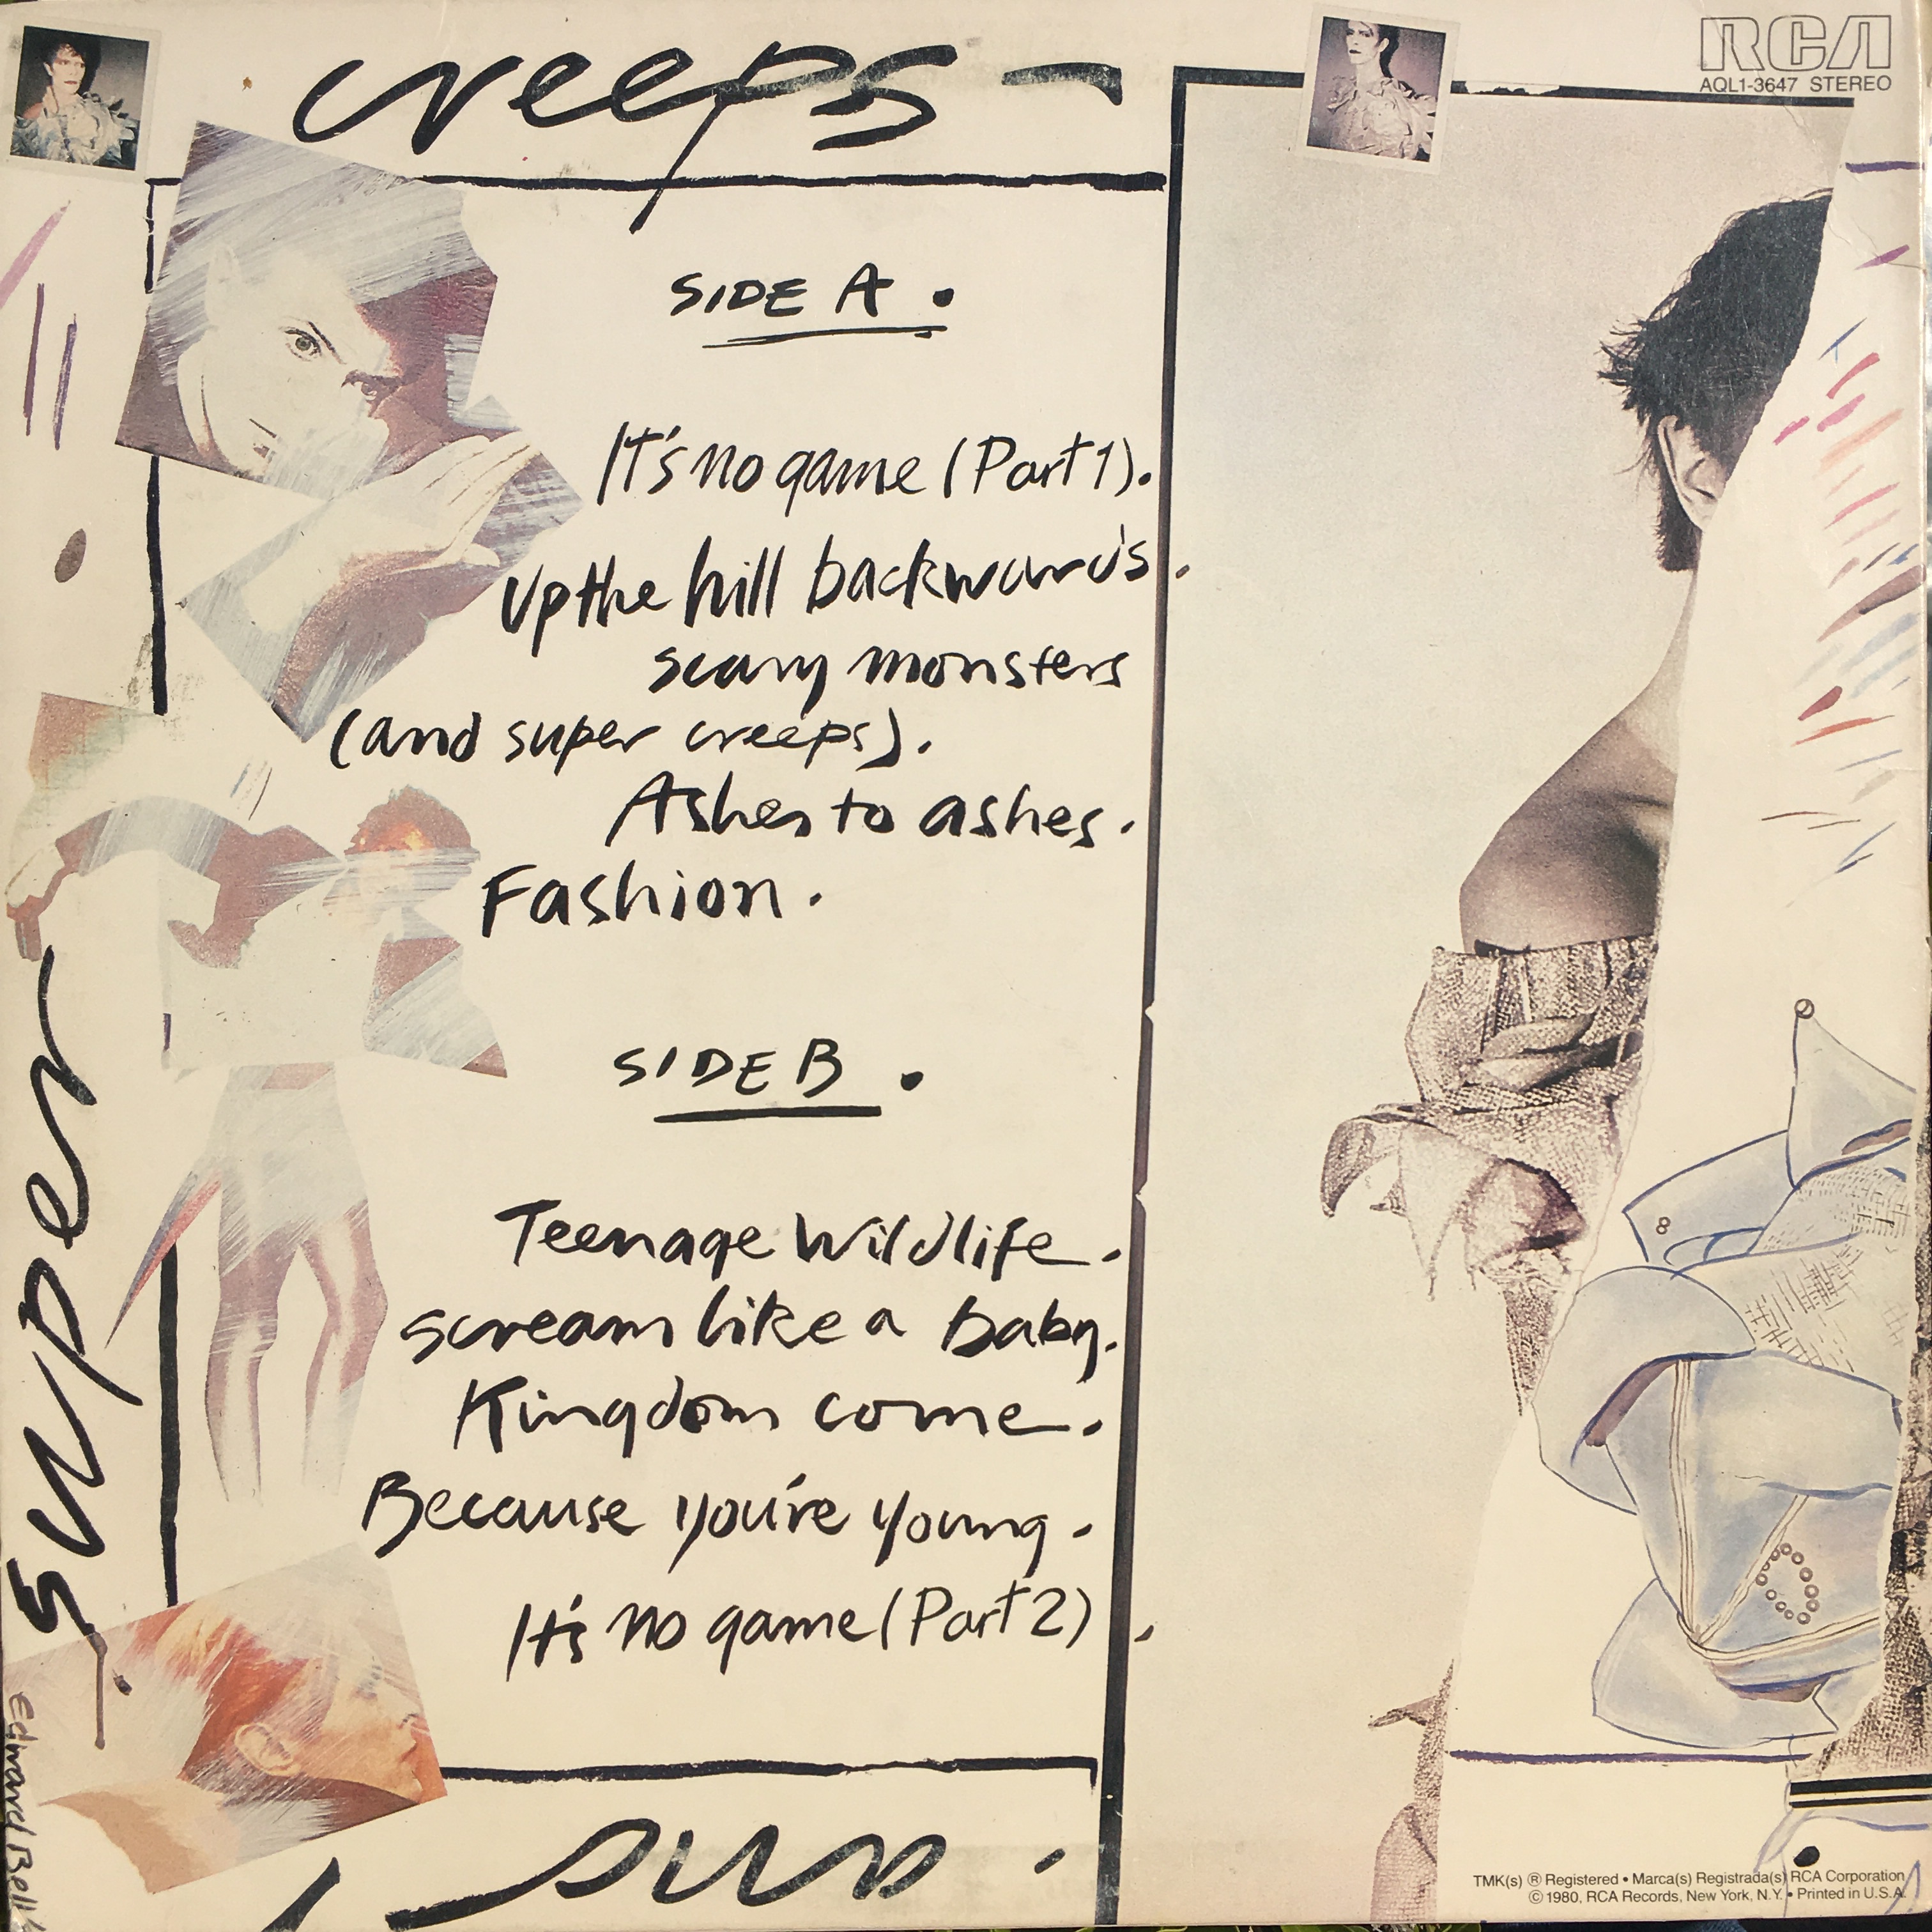 creeps -
RCA
AQL1-3647 STEREO
SIDE A .
It's no game (Part 1).
Up the hill backwards.
scary monsters
(and super creeps).
Ashes to ashes.
Fashion.
SIDE B .
Teenage Wildlife.
scream like a baby.
Kingdom come.
Because you're young.
It's no game (Part 2).
super
Edward Bell
TMK(s) ® Registered • Marca(s) Registrada(s) RCA Corporation
© 1980, RCA Records, New York, N.Y. • Printed in U.S.A.